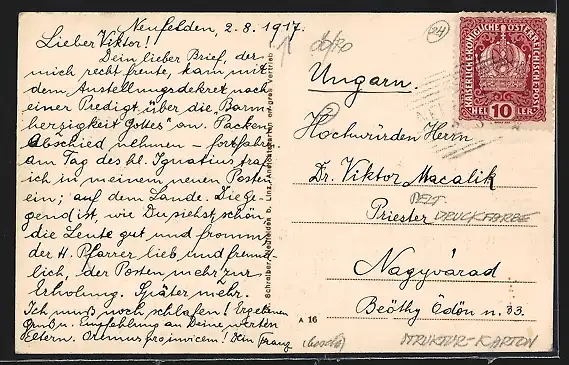 Neufelden, 2.8.1917.
Lieber Viktor!
Dein lieber Brief, der
mich recht freute, kam mit
dem Anstellungsdekret nach
einer Predigt „über die Barm-
herzigkeit Gottes" an. Packen,
Abschied nehmen – fortfahren.
am Tag des hl. Ignatius traf
ich in meinem neuen Posten
ein; auf dem Lande. Die Ge-
gend ist, wie Du siehst, schön,
die Leute gut und fromm,
der H. Pfarrer lieb und freund-
lich, der Posten mehr zur
Erholung. Später mehr.
Ich muß noch schlafen! Ergebenen
Gruß u. Empfehlung an Deine werten
Eltern. Oremus pro invicem! Dein Franz
Schreiber, Neufelden b. Linz.
A 16
24
KAISERLICHE KÖNIGLICHE ÖSTERREICHISCHE POST
HEL 10 LER
Ungarn.
Hochwürden Herrn
Dr. Viktor Macalik
Priester
BELT-
DRUCKFARBE
Nagyvárad
Beöthy Ödön u. 33.
STRUKTUR-KARTON